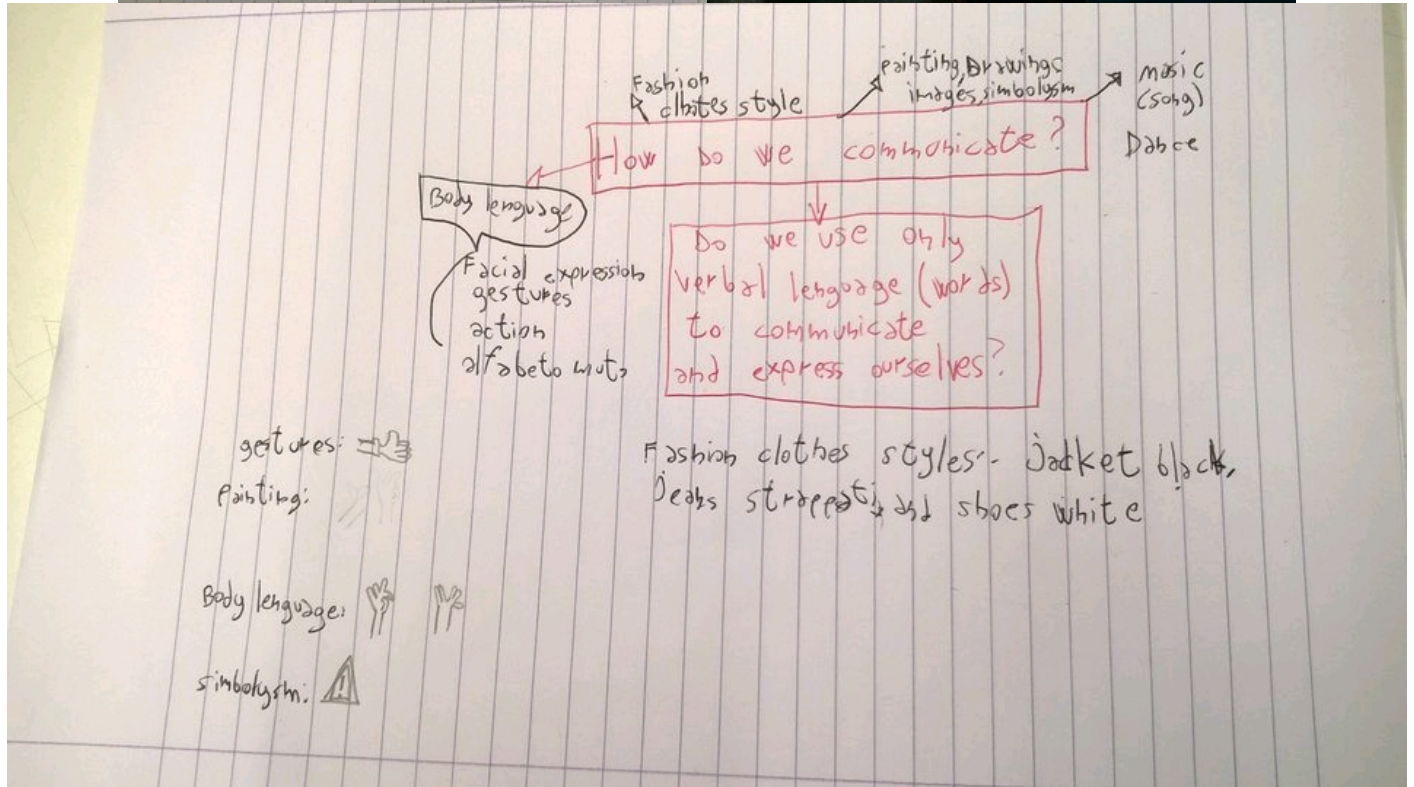 Fashion
clbtes style
painting, Drawings
images, simbolysm
music
(song)
Dance
How Do we communicate?
Body lenguage
Facial expression
gestures
action
alfabeto muto
Do we use only
verbal lenguage (words)
to communicate
and express ourselves?
gestures:
Painting:
Body lenguage:
simbolysm:
Fashion clothes styles:- Jacket black,
Jeans strappati, and shoes white